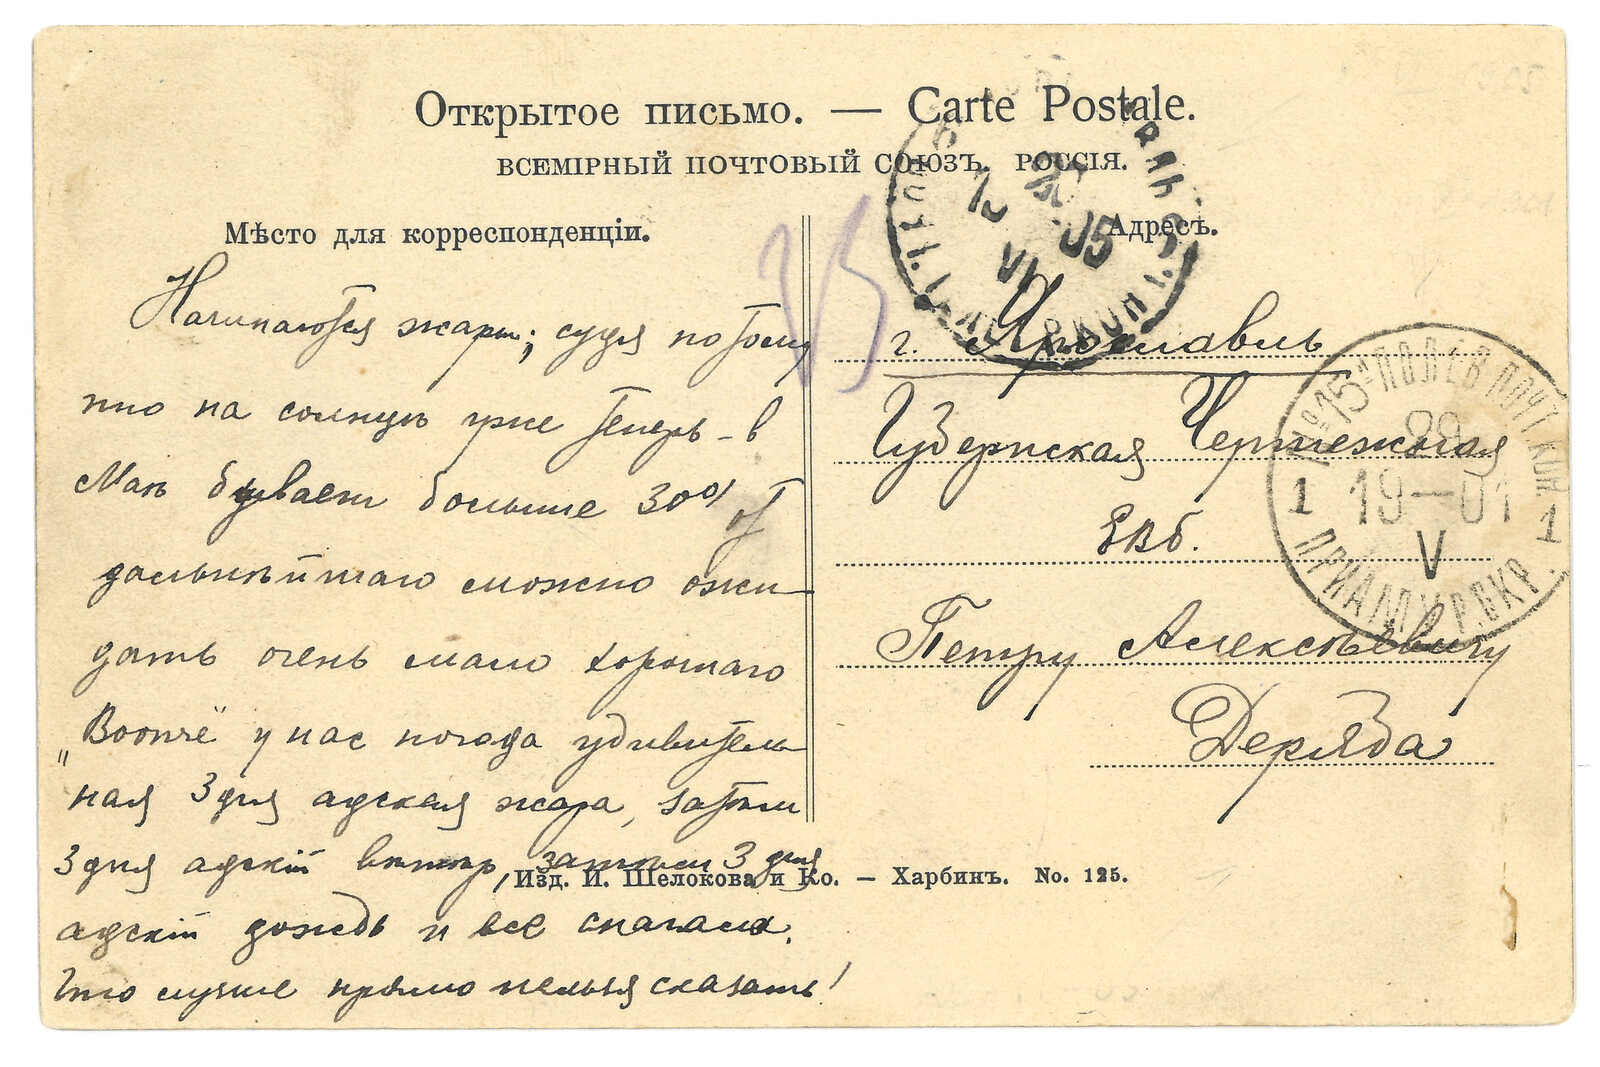 Открытое письмо. — Carte Postale.
ВСЕМІРНЫЙ ПОЧТОВЫЙ СОЮЗЪ. РОССІЯ.
Мѣсто для корреспонденціи.
Адресъ.
Начинаются жары; судя потому
что на солнцѣ уже теперь – в
Маѣ бывает больше 30° от
дальнѣйшаго можно ожи-
дать очень мало хорошаго
„Вообче" у нас погода удивитель-
ная 3 дня адская жара, затѣм
3 дня адскій вѣтер, затѣм 3 дня
адскій дождь и все сначала.
Что лучше прямо нельзя сказать!
г. Ярославль
Губернская Чертежная
ЕВБ.
Петру Алексѣевичу
Деряба
Изд. И. Щелокова и Ко. – Харбинъ. No. 125.
15
VI
05
№ 15 ПОЛЕВ. ПОЧТ. КОН.
1 19—01 1
V
ПРИАМУР. ОКР.